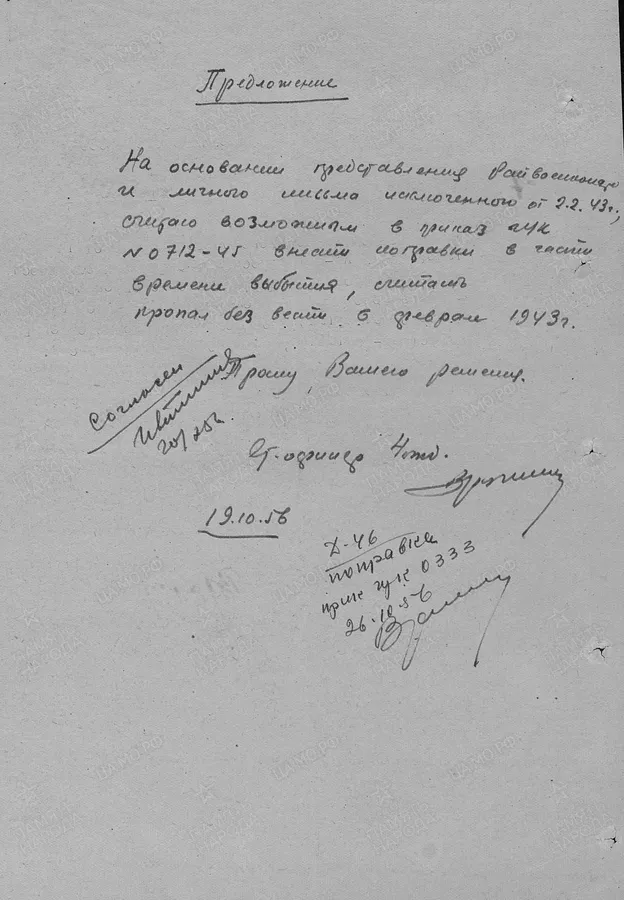 Предложение
На основании представления Райвоенкомата
и личного письма исключенного от 2.2.43г.,
считаю возможным в приказ ГУК
N 0712-45 внести поправки в части
времени выбытия, считать
пропал без вести в феврале 1943г.
Прошу Вашего решения.
Согласен
20/X 56
Ст. офицер 4 отд.
19.10.56
Д-46
поправка
прик ГУК 0333
26.10.56